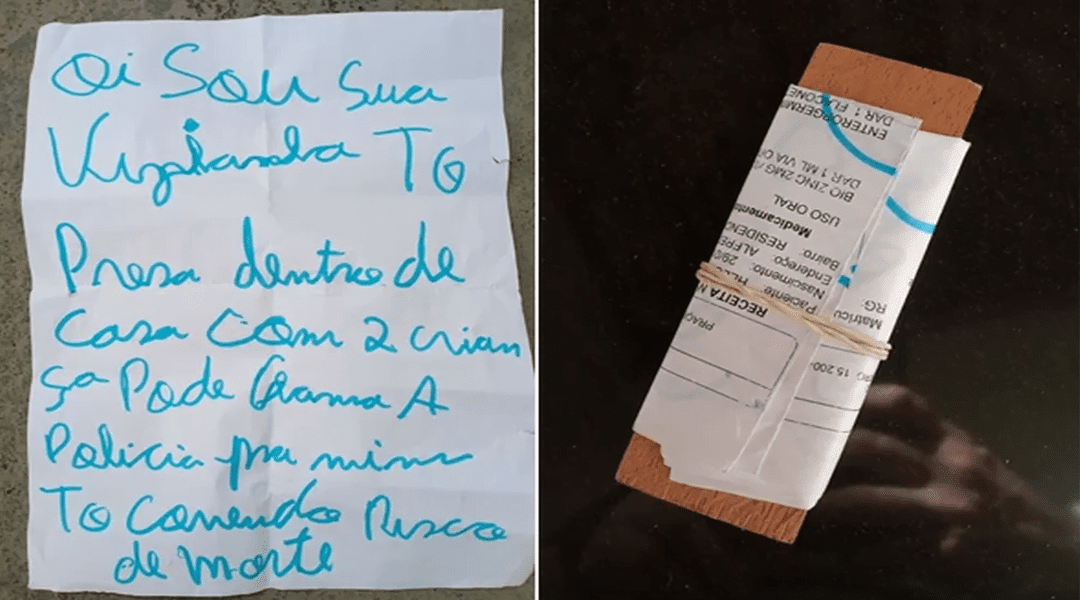 Oi Sou Sua
TO
Presa dentro de
Casa Com 2 crian
ça Pode Chama A
Policia pra mim
To Correndo Risco
de morte
PRAÇ
RECEITA M
Paciente
Nascimento: 29/0
Endereço: ALFRE
Bairro: RESIDENC
Medicamento
USO ORAL
BIO ZINC 2MG/
DAR 1 ML VIA O
ENTEROGERMI
DAR 1 FLACONE
15.200-
Matrícu
RG: